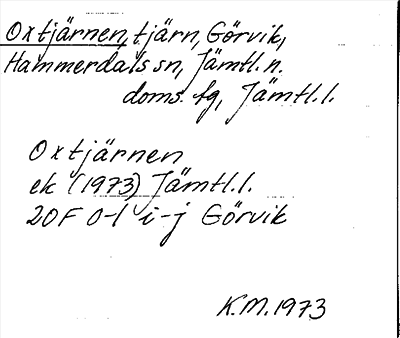 Oxtjärnen, tjärn, Görvik,
Hammerdals sn, Jämtl. n.
doms. fg, Jämtl. l.
Oxtjärnen
ek (1973) Jämtl. l.
20F 0-1 i-j Görvik
K.M. 1973